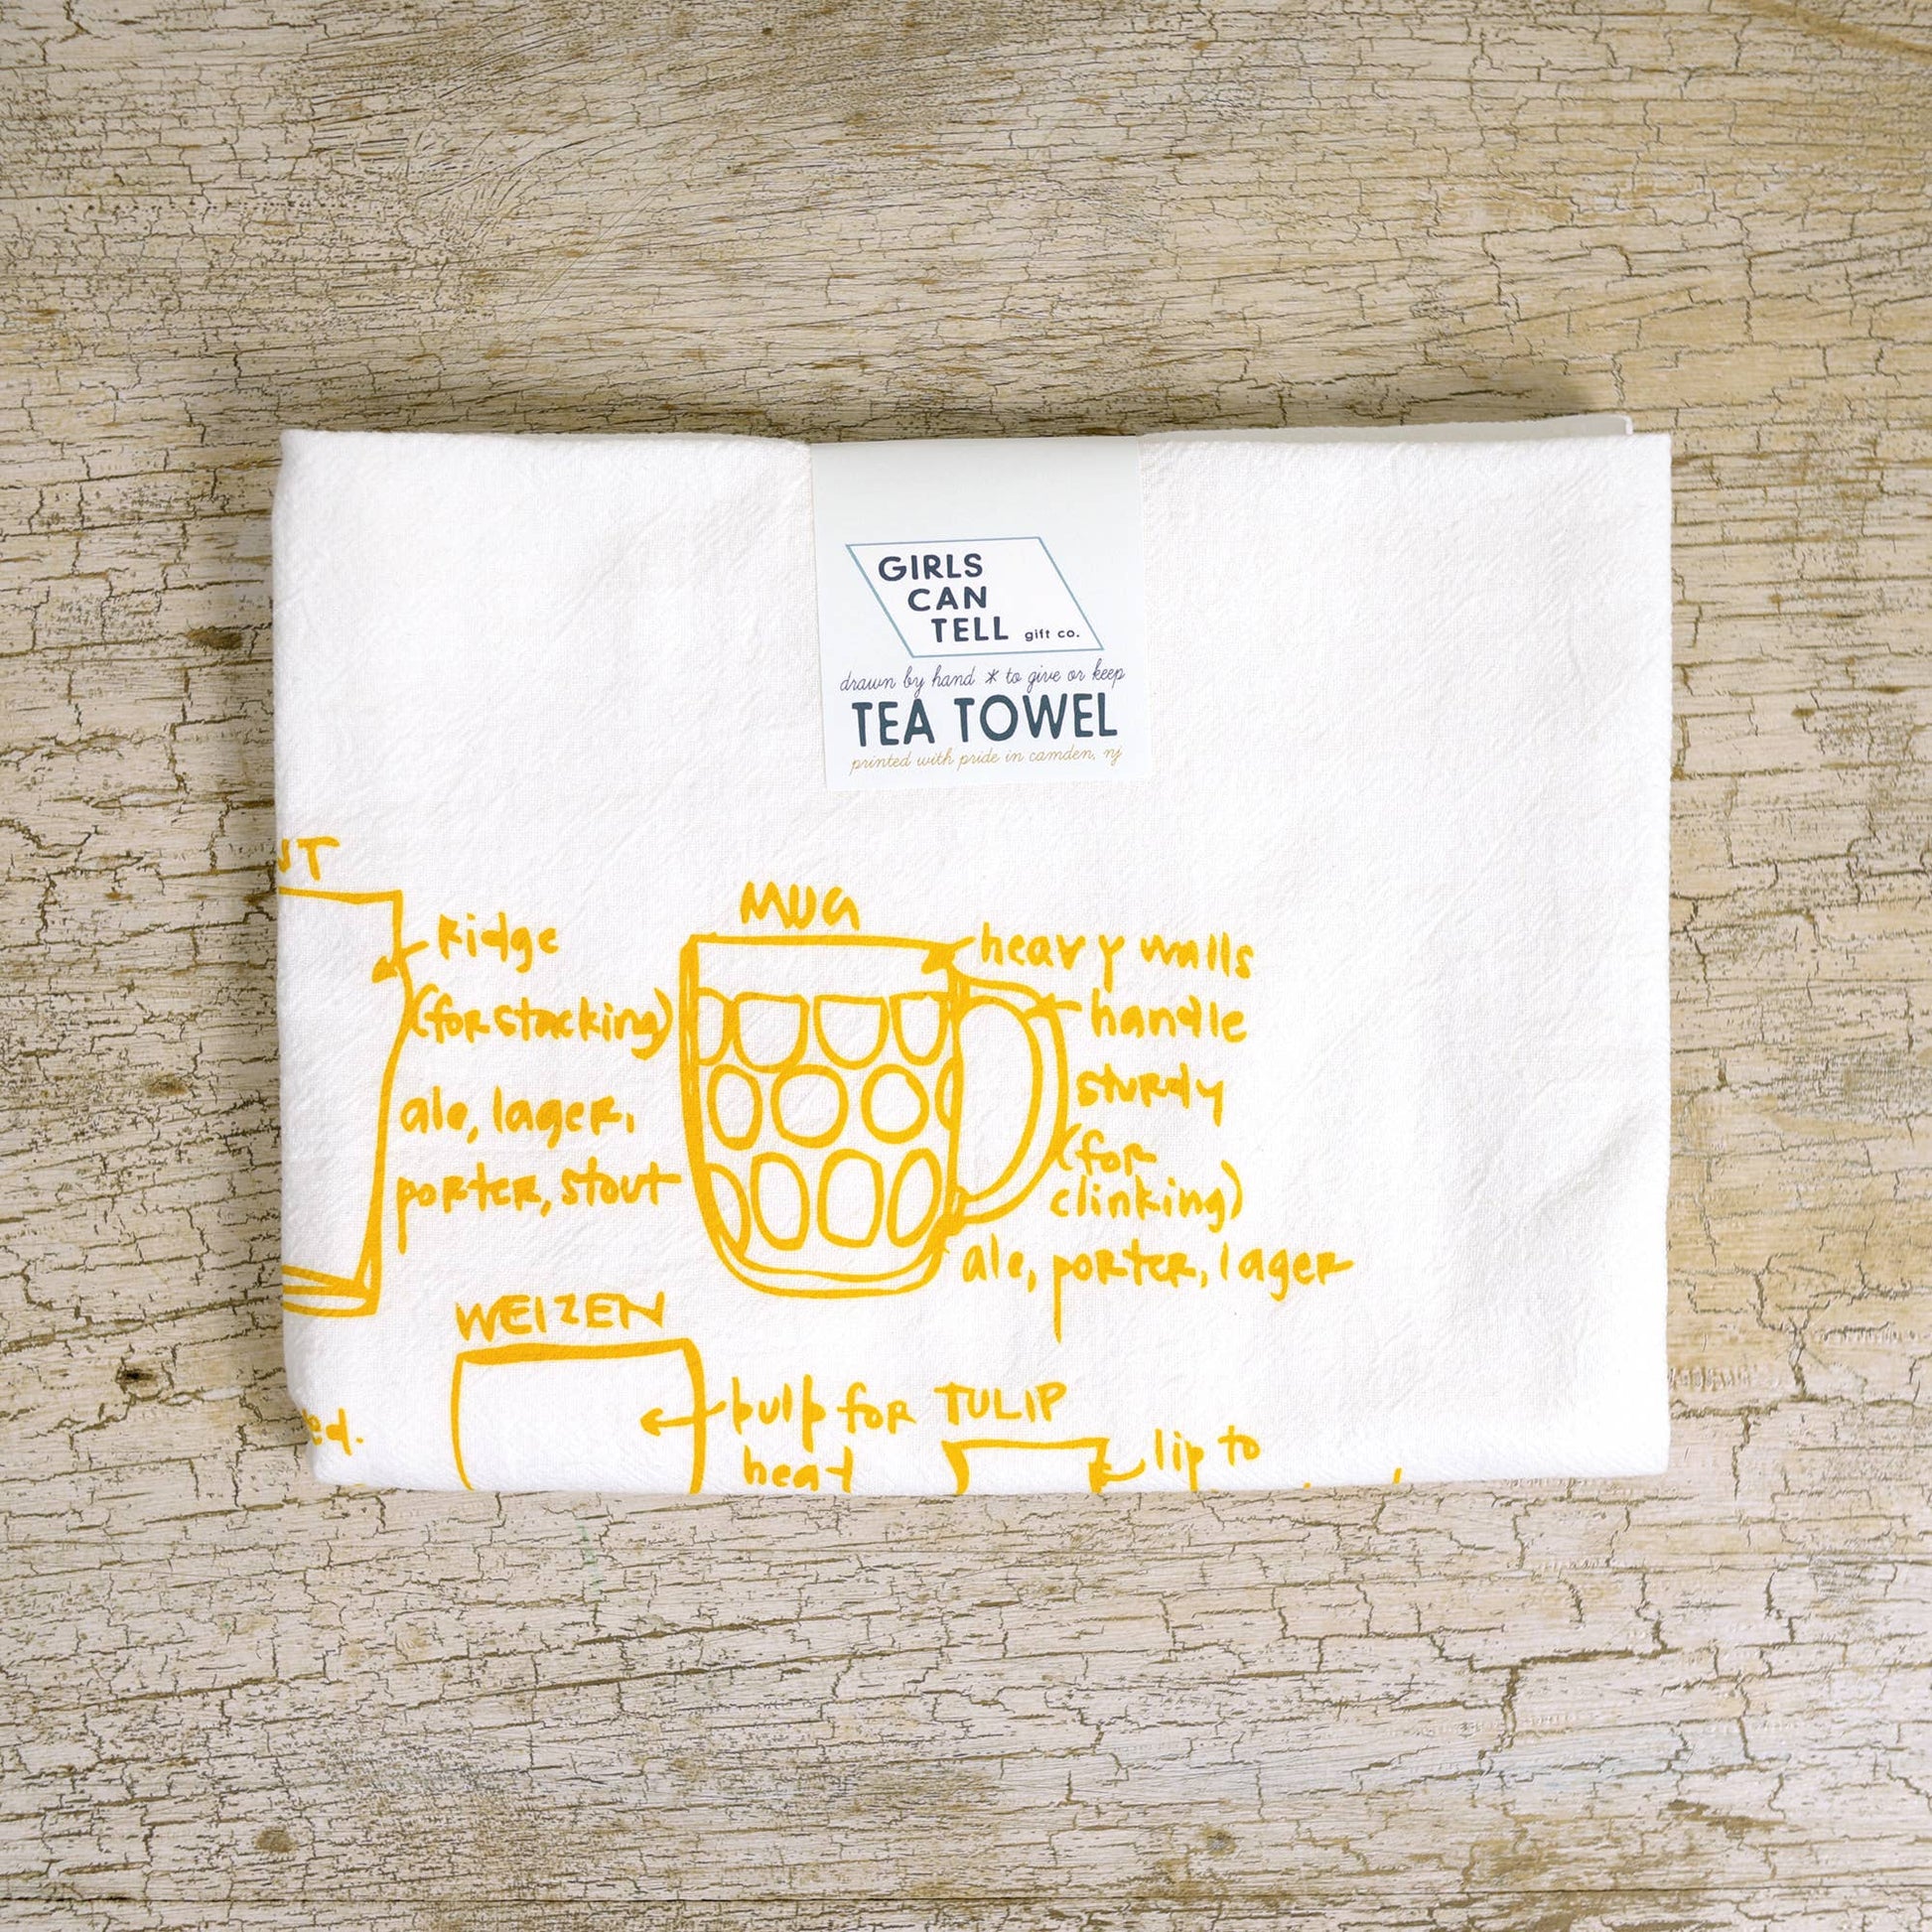 GIRLS
CAN
TELL gift co.
drawn by hand * to give or keep
TEA TOWEL
printed with pride in camden, nj
Ridge
(for stacking)
ale, lager,
porter, stout
MUG
heavy walls
handle
sturdy
(for
clinking)
ale, porter, lager
WEIZEN
bulb for
heat
TULIP
lip to